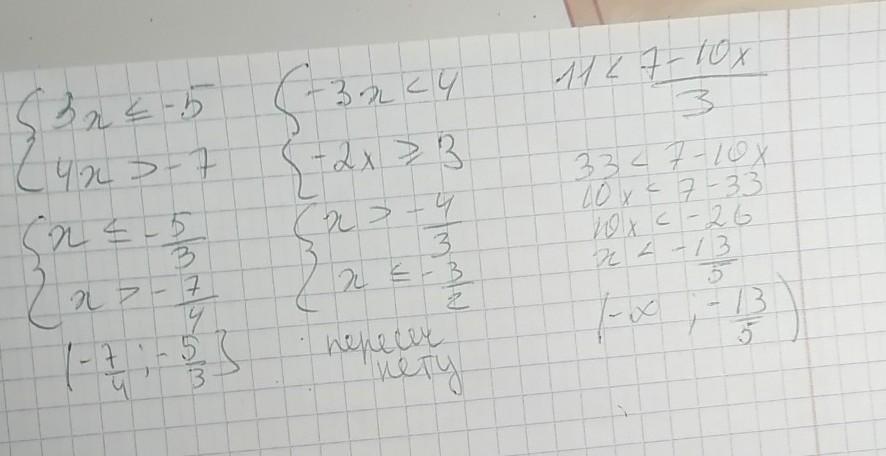 { 3x ≤ -5
4x > -7
{ x ≤ -5/3
x > -7/4
(-7/4; -5/3]
{ -3x < 4
-2x ≥ 3
{ x > -4/3
x ≤ -3/2
пересеч
нету
11 < 7-10x/3
33 < 7-10x
10x < 7-33
10x < -26
x < -13/5
(-∞; -13/5)